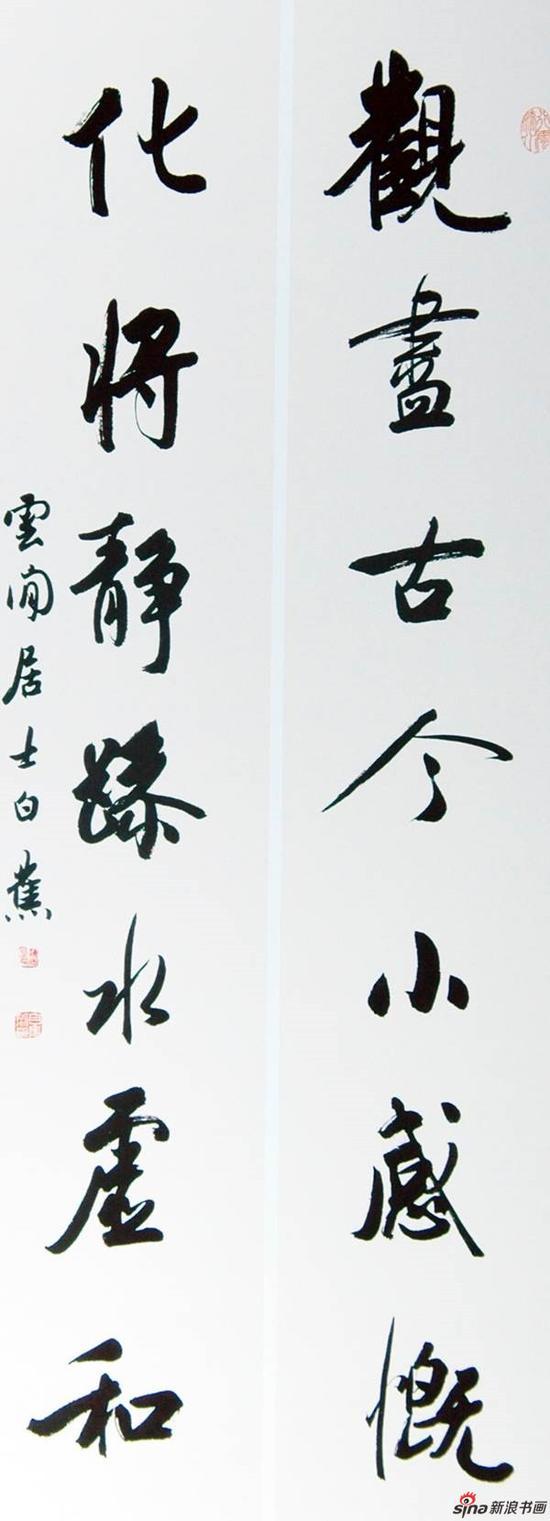 觀盡古今小感慨
化將靜躁水虛和
雲間居士白蕉
sina新浪书画